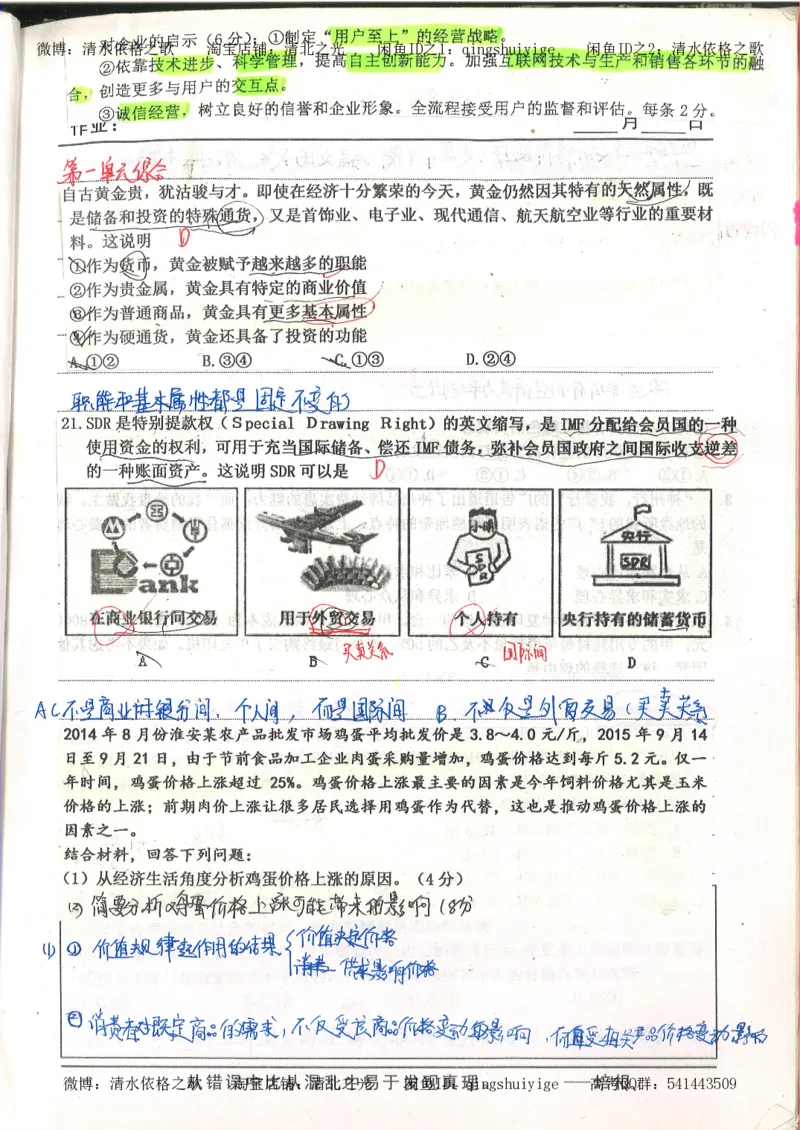 对企业的启示（6分）：①制定“用户至上”的经营战略。
微博：清水依格之歌 淘宝店铺：清北之光 闲鱼ID之1：qingshuiyige 闲鱼ID之2：清水依格之歌
②依靠技术进步、科学管理，提高自主创新能力。加强互联网技术与生产和销售各环节的融
合，创造更多与用户的交互点。
③诚信经营，树立良好的信誉和企业形象。全流程接受用户的监督和评估。每条2分。
作业： 月 日
第一单元综合
自古黄金贵，犹沽骏与才。即使在经济十分繁荣的今天，黄金仍然因其特有的天然属性，既
是储备和投资的特殊通货，又是首饰业、电子业、现代通信、航天航空业等行业的重要材
料。这说明 D
①作为货币，黄金被赋予越来越多的职能
②作为贵金属，黄金具有特定的商业价值
③作为普通商品，黄金具有更多基本属性
④作为硬通货，黄金还具备了投资的功能
A.①② B.③④ C.①③ D.②④
职能和基本属性都是固定不变的
21.SDR是特别提款权（Special Drawing Right）的英文缩写，是IMF分配给会员国的一种
使用资金的权利，可用于充当国际储备、偿还IMF债务，弥补会员国政府之间国际收支逆差
的一种账面资产。这说明SDR可以是 D
Bank
小明
SDR
央行
SDR
在商业银行间交易 用于外贸交易 个人持有 央行持有的储蓄货币
A B 买卖关系 C 国际间 D
AC不是商业银行间、个人间，而是国际间 B.不仅仅是外贸交易(买卖关系
2014年8月份淮安某农产品批发市场鸡蛋平均批发价是3.8～4.0元/斤，2015年9月14
日至9月21日，由于节前食品加工企业肉蛋采购量增加，鸡蛋价格达到每斤5.2元。仅一
年时间，鸡蛋价格上涨超过25%。鸡蛋价格上涨最主要的因素是今年饲料价格尤其是玉米
价格的上涨；前期肉价上涨让很多居民选择用鸡蛋作为代替，这也是推动鸡蛋价格上涨的
因素之一。
结合材料，回答下列问题：
（1）从经济生活角度分析鸡蛋价格上涨的原因。（4分）
(2)简要分析鸡蛋价格上涨可能带来的影响(8分
(1)①价值规律起作用的结果 价值决定价格
供求影响价格
②消费者对既定商品的需求，不仅受该商品价格变动的影响，而且受相关产品价格变动影响
微博：清水依格之歌 淘宝店铺：清北之光 闲鱼ID：qingshuiyige 高考QQ群：541443509
从错误中比从混乱中易于发现真理。——培根